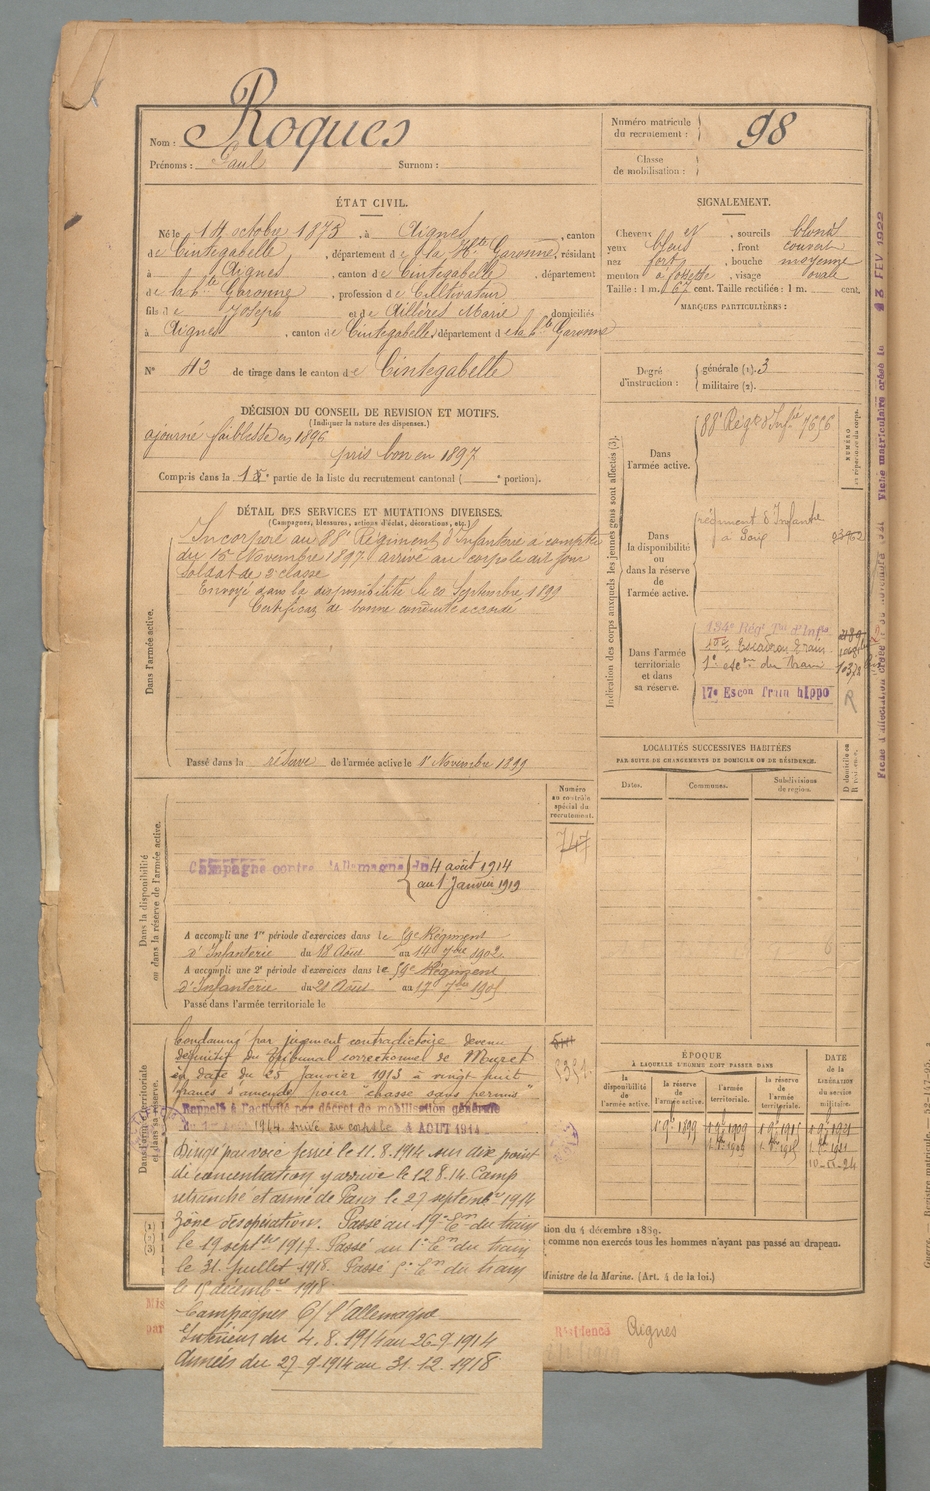 Nom : Roques
Prénoms : Paul Surnom :
Numéro matricule du recrutement : 98
Classe de mobilisation :
ÉTAT CIVIL.
Né le 14 octobre 1873, à Aignes, canton
de Cintegabelle, département de la Hte Garonne, résidant
à Aignes, canton de Cintegabelle, département
de la hte Garonne, profession de Cultivateur
fils de Joseph et de Aillères Marie, domiciliés
à Aignes, canton de Cintegabelle, département de la hte Garonne
N° 43 de tirage dans le canton de Cintegabelle
SIGNALEMENT.
Cheveux N, sourcils blond
yeux bleus, front couvert
nez fort, bouche moyenne
menton à fossette, visage ovale
Taille : 1 m. 67 cent. Taille rectifiée : 1 m. cent.
MARQUES PARTICULIÈRES :
Degré d'instruction : générale (1). 3
militaire (2).
DÉCISION DU CONSEIL DE REVISION ET MOTIFS.
(Indiquer la nature des dispenses.)
ajourné faiblesse en 1896
pris bon en 1897
Compris dans la 1e partie de la liste du recrutement cantonal ( e portion).
DÉTAIL DES SERVICES ET MUTATIONS DIVERSES.
(Campagnes, blessures, actions d'éclat, décorations, etc.)
Dans l'armée active.
Incorporé au 88e Régiment d'Infanterie à compter
du 15 Novembre 1897 arrivé au corps le dit jour
soldat de 2e classe
Envoyé dans la disponibilité le 20 Septembre 1899
Certificat de bonne conduite accordé
Passé dans la réserve de l'armée active le 1r Novembre 1899
Indication des corps auxquels les jeunes gens sont affectés (3).
NUMÉRO
Dans l'armée active.
88e Régt d'Infie 7656
Dans la disponibilité ou dans la réserve de l'armée active.
régiment d'Infante
à Foix
Dans l'armée territoriale et dans sa réserve.
134e Régt Tal d'Infie
Escadron Train
1e escon du Train
17e Escon Train hippo
R
Fiche matriculaire 13 FEV 1922
LOCALITÉS SUCCESSIVES HABITÉES
PAR SUITE DE CHANGEMENTS DE DOMICILE OU DE RÉSIDENCE.
Dates.
Communes.
Subdivisions de région.
D domicile ou R résidence.
Dans la disponibilité ou dans la réserve de l'armée active.
Numéro au contrôle spécial du recrutement.
747
Campagne contre l'Allemagne du 4 août 1914
au 1 Janvier 1919
A accompli une 1re période d'exercices dans le 59e Régiment
d'Infanterie du 18 Août au 14 7bre 1902
A accompli une 2e période d'exercices dans le 59e Régiment
d'Infanterie du 21 Août au 17 7bre 1905
Passé dans l'armée territoriale le
Dans l'armée territoriale et dans sa réserve.
Condamné par jugement contradictoire devenu
définitif du Tribunal correctionnel de Muret
en date du 25 Janvier 1913 à vingt huit
francs d'amende pour "chasse sans permis"
Rappelé à l'activité par décret de mobilisation générale
du 1er 1914. Arrivé au corps le 4 AOUT 1914
Dirigé par voie ferrée le 11.8.1914 sur dixe point
de concentration y arrive le 12 8.14. Camp
retranché et armée de Paris le 27 septembre 1914
Zône des opérations. Passé au 19e Em du train
le 19 septbre 1917. Passé au 1e Em du train
le 31 Juillet 1918. Passé 5e Em du train
le 15 décembre 1918
Campagnes C/ l'Allemagne
Intérieur du 4.8.1914 au 26-9-1914
Armées du 27-9-1914 au 31.12.1918
ÉPOQUE
À LAQUELLE L'HOMME DOIT PASSER DANS
la disponibilité de l'armée active.
la réserve de l'armée active.
l'armée territoriale.
la réserve de l'armée territoriale.
DATE de la LIBÉRATION du service militaire.
1r 9bre 1899 1r 9bre 1909
10-11-24
tion du 4 décembre 1889.
comme non exercés tous les hommes n'ayant pas passé au drapeau.
Ministre de la Marine. (Art. 4 de la loi.)
Résidence Aignes